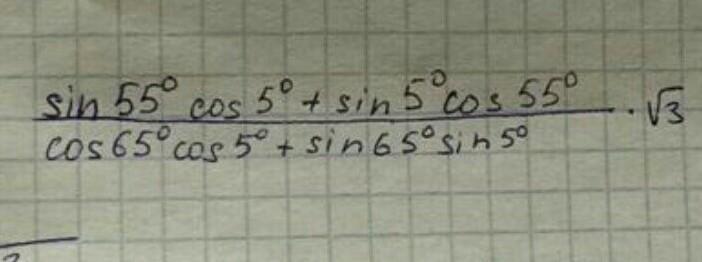 sin 55° cos 5° + sin 5° cos 55°
cos 65° cos 5° + sin 65° sin 5°
· √3